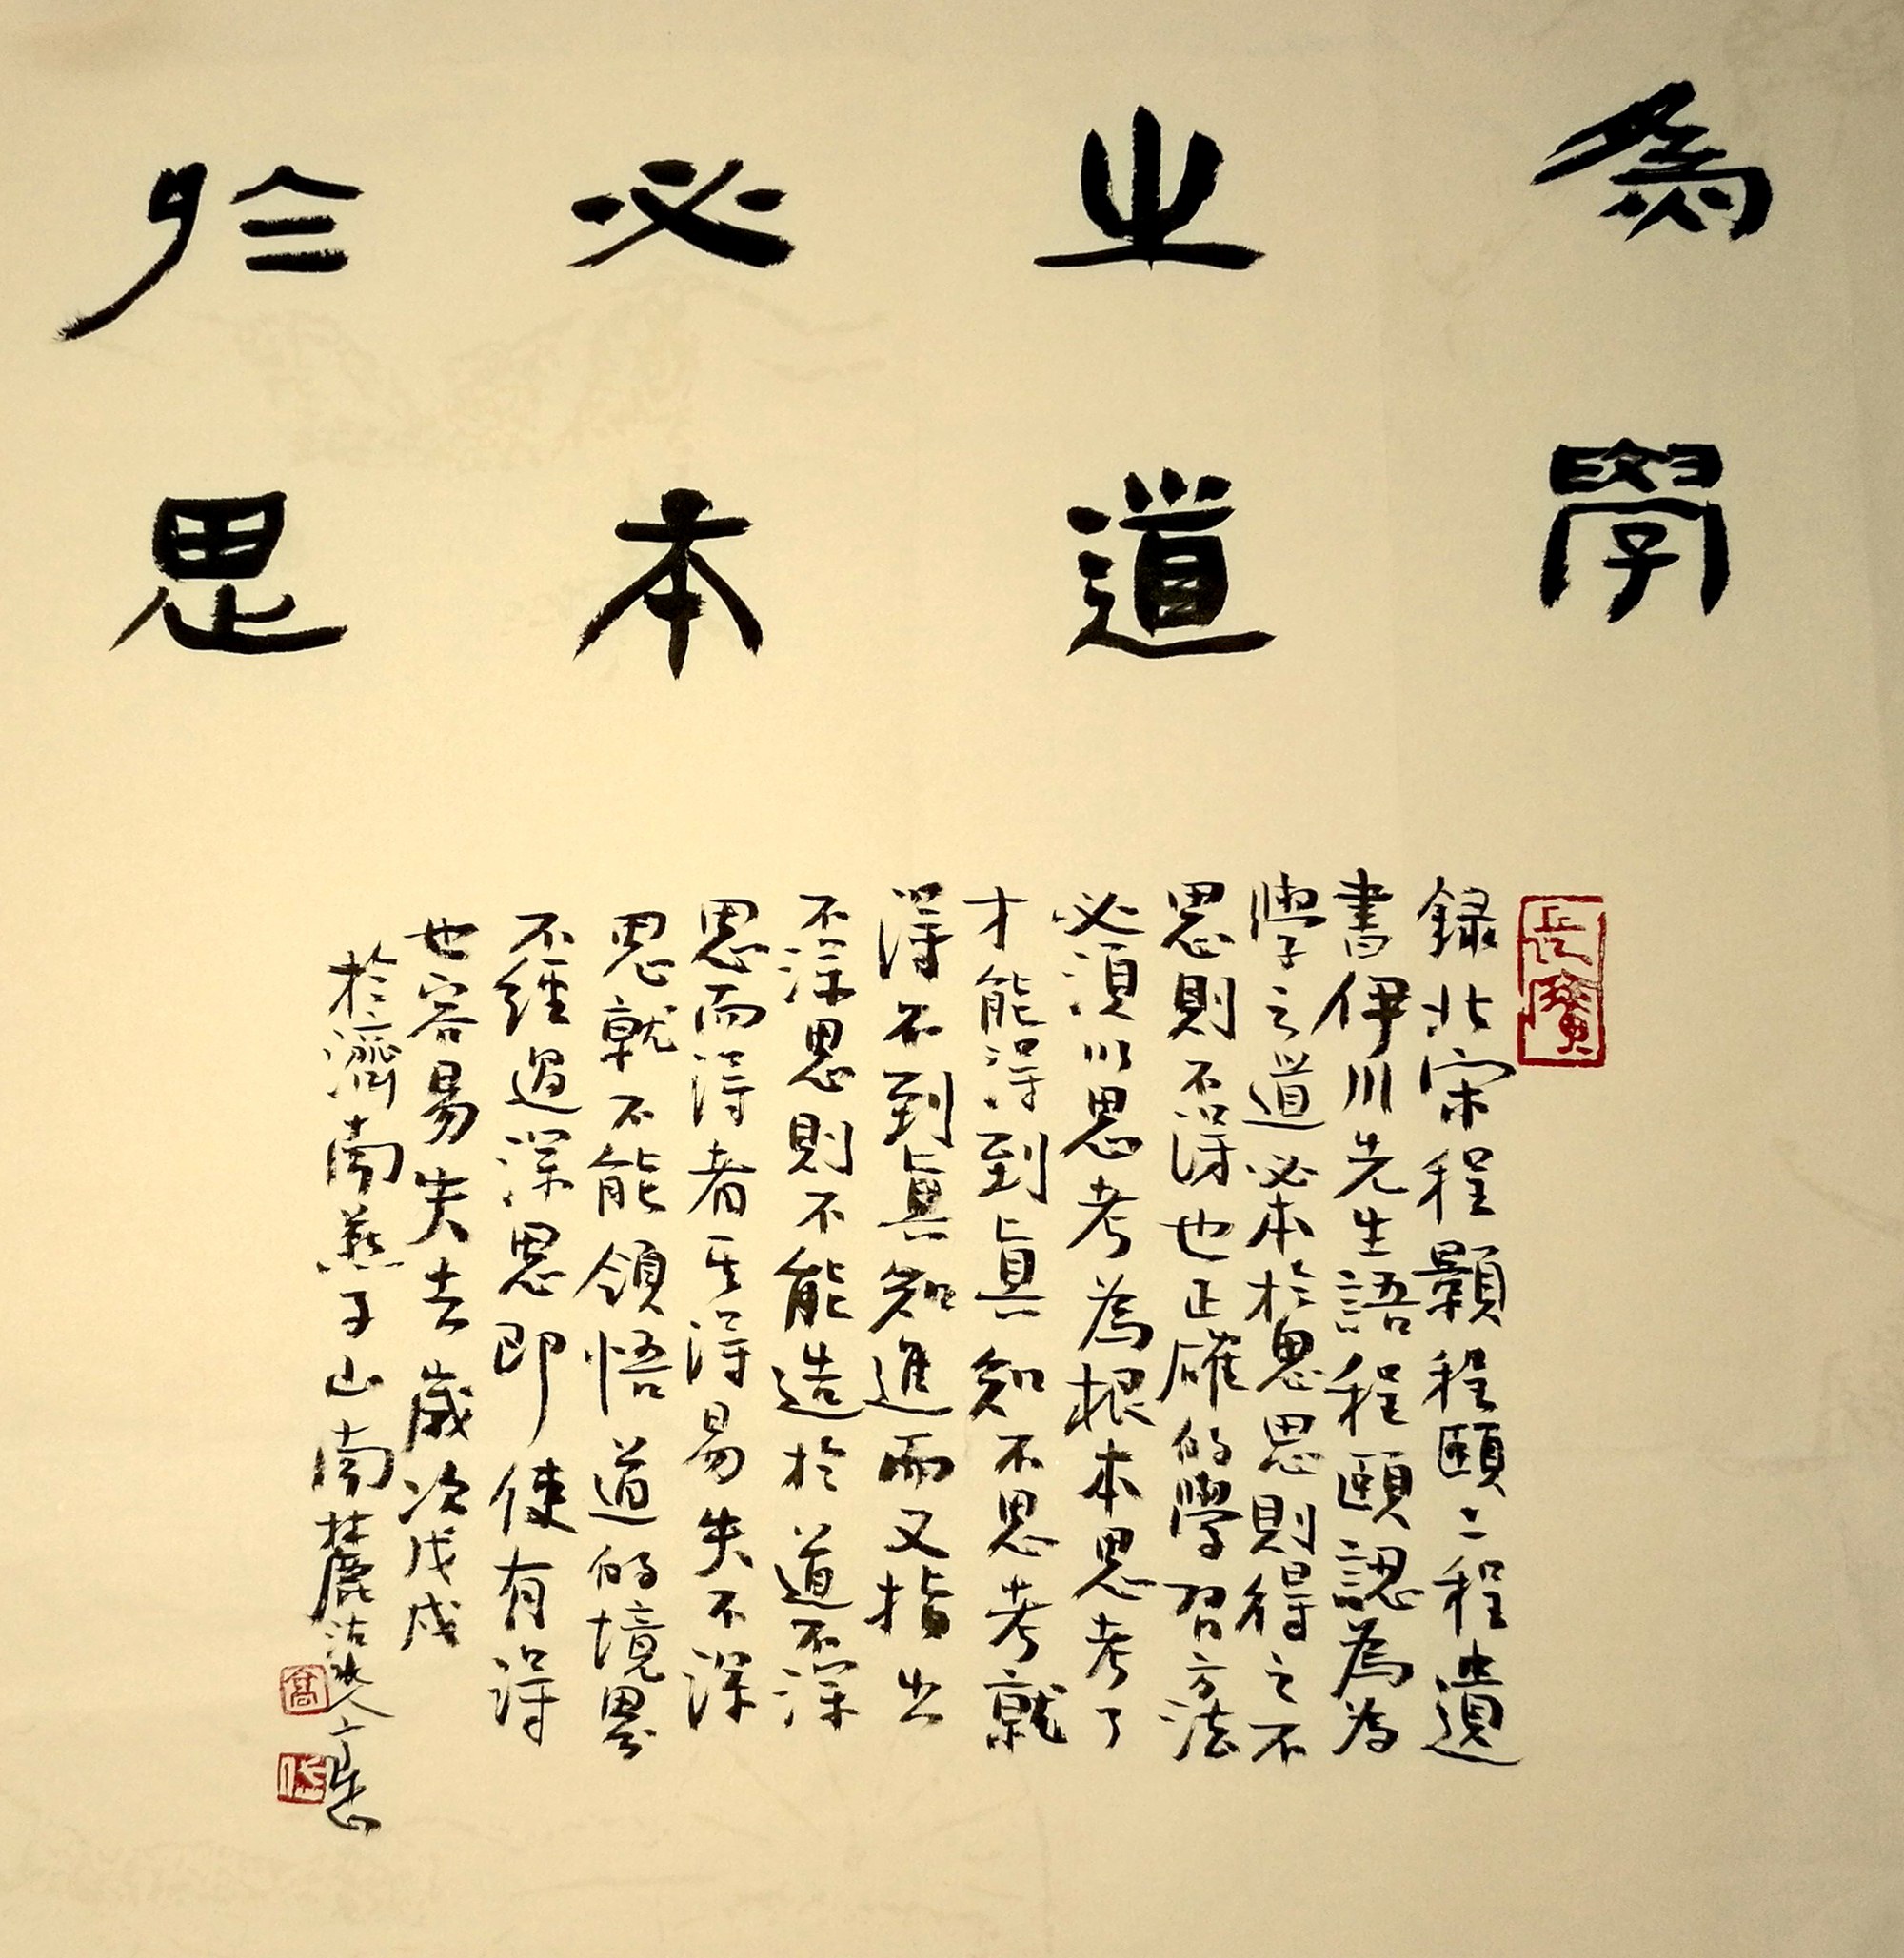 為學
之道
必本
於思
録北宋程顥程頤二程遺
書伊川先生語程頤認為為
學之道必本於思思則得之不
思則不得也正確的學習方法
必須以思考為根本思考了
才能得到眞知不思考就
得不到眞知進而又指出
不深思則不能造於道不深
思而得者其得易失不深
思就不能領悟道的境界
不經過深思即使有得
也容易失去歲次戊戌
於濟南燕子山南麓